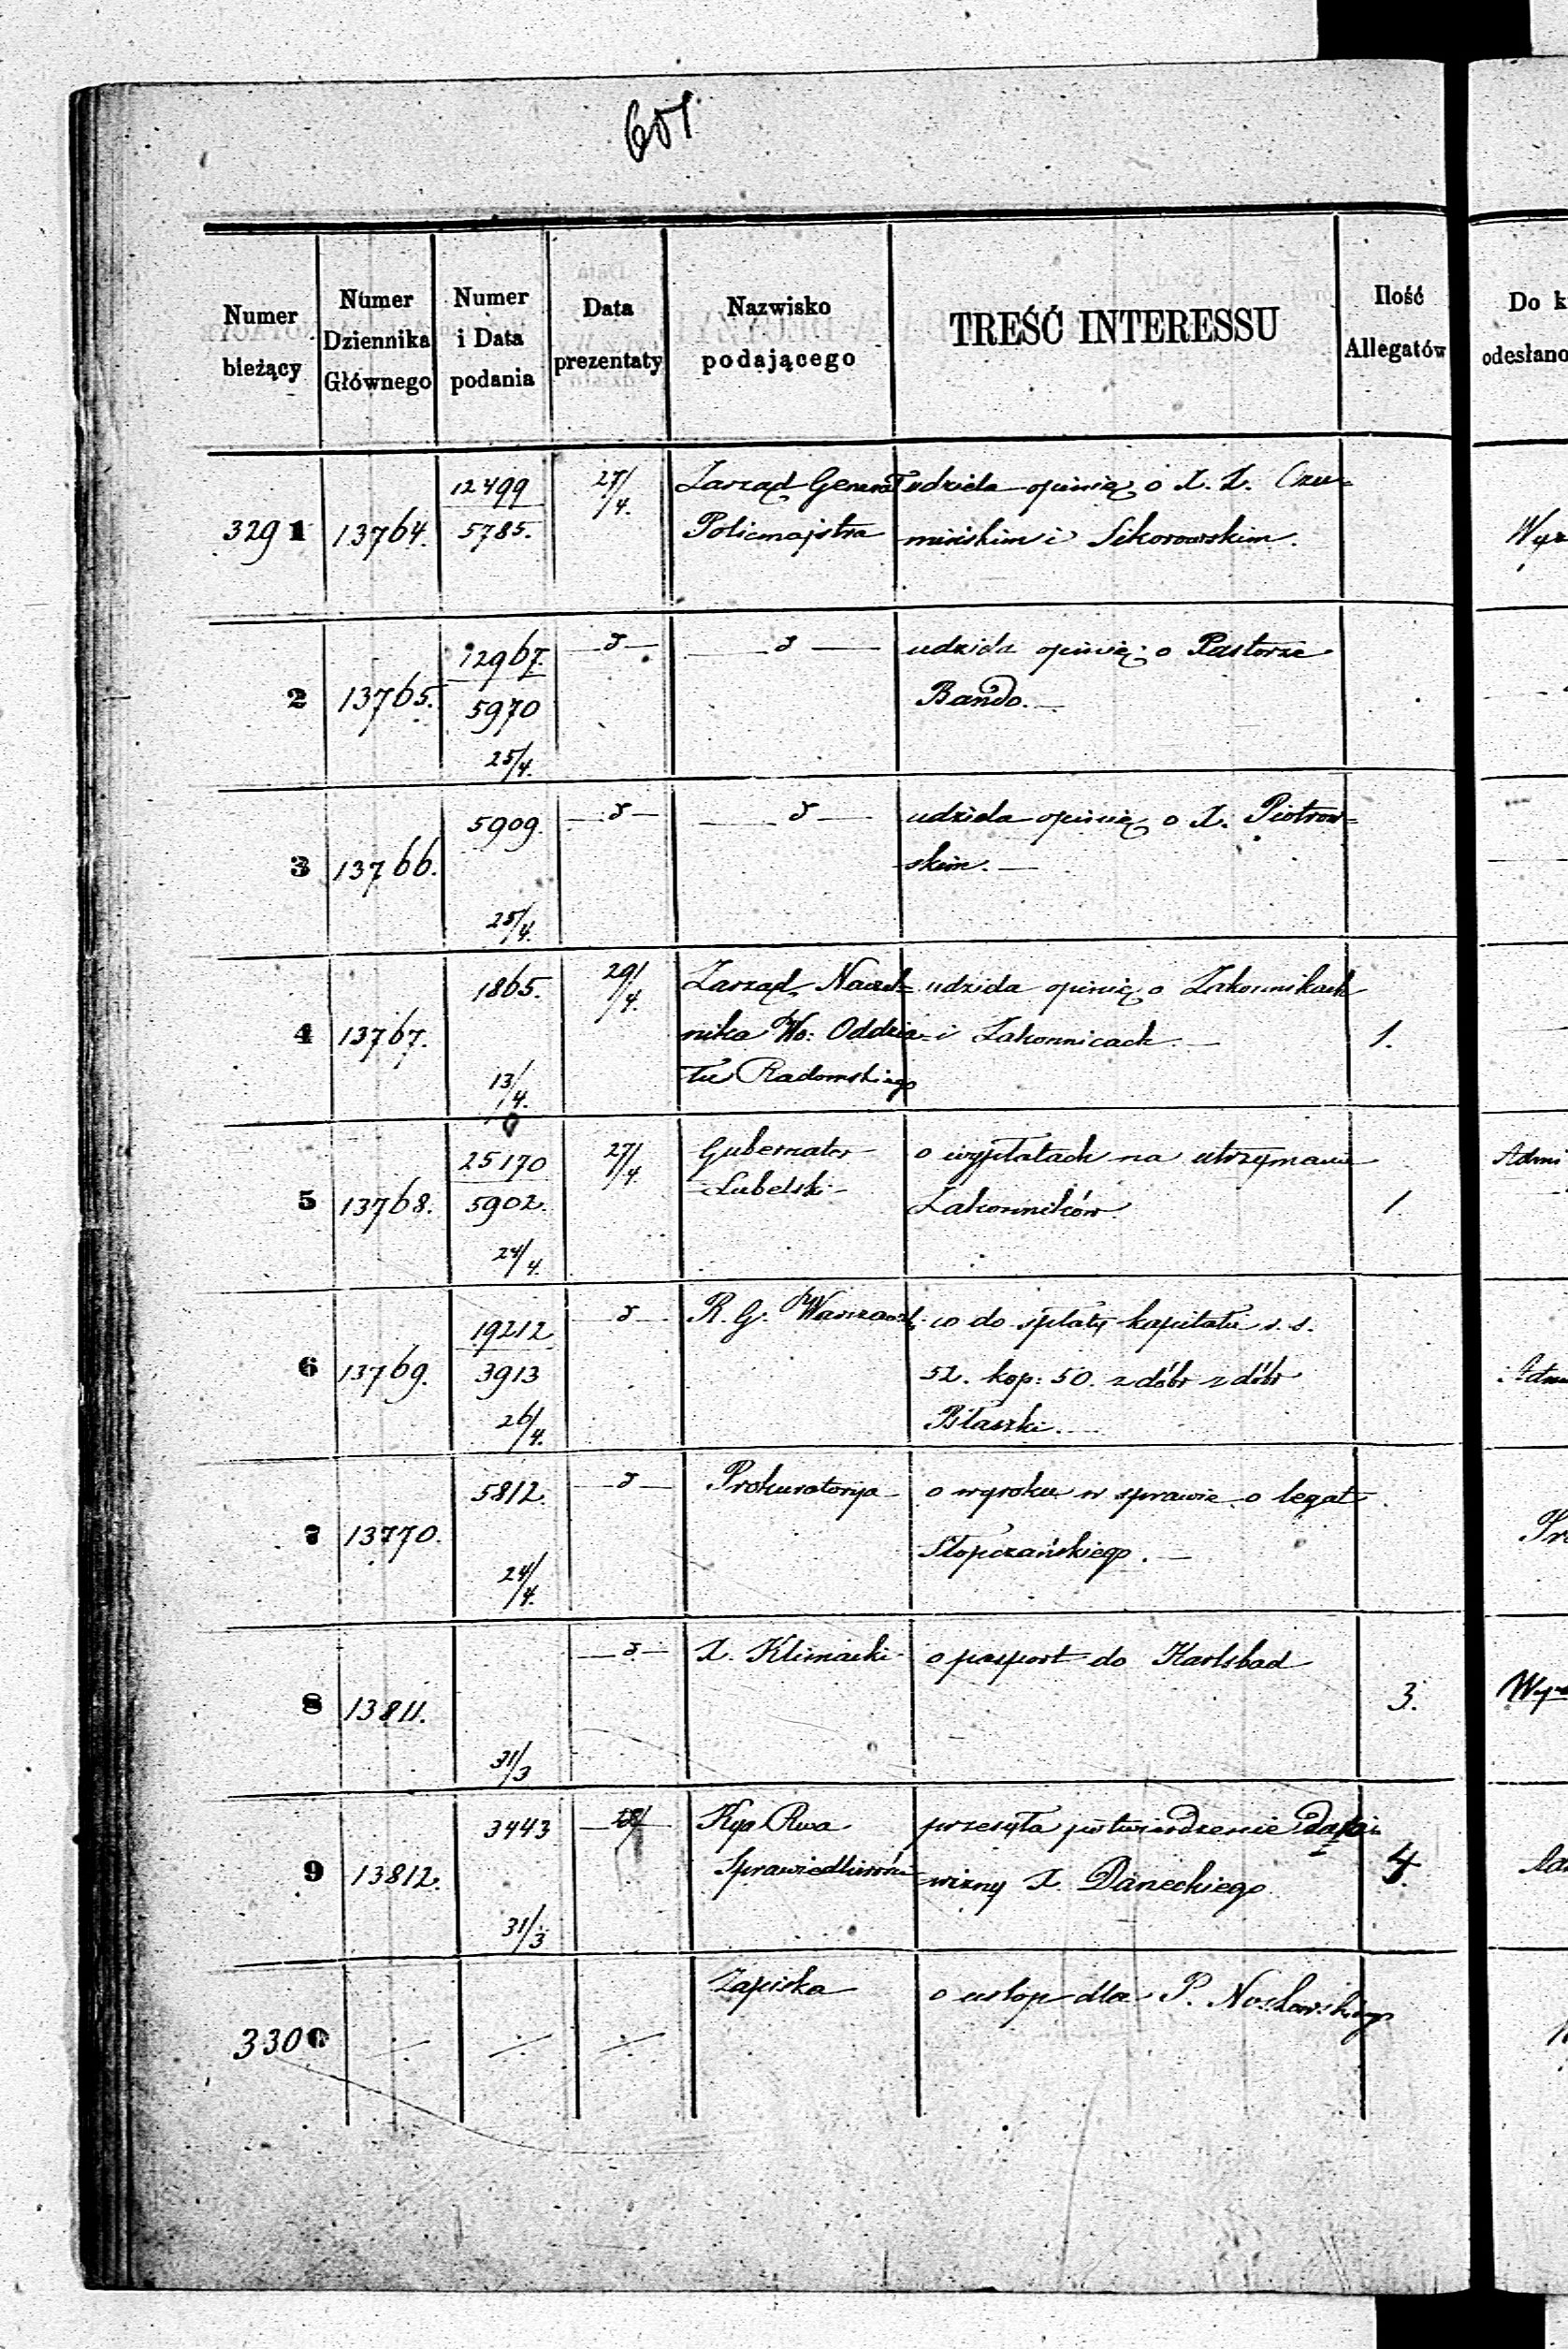 601
Numer bieżący
Numer Dziennika Głównego
Numer i Data podania
Data prezentaty
Nazwisko podającego
TREŚĆ INTERESSU
Ilość Allegatów
Do k
odesłano
3291 13764. 12499 27/4. Zarząd Generał udziela opinię o X. X. Czu=
5785. Policmajstra mińskim i Sikorowskim.
2 13765. 12967. — d — — d — udziela opinię o Pastorze
5970 Bando. —
25/4.
3 13766. 5909. — d — — d — udziela opinię o X. Piotrow=
skim. —
25/4.
4 13767. 1865. 29/4. Zarząd Naczel= udziela opinię o Zakonnikach
nika Wo: Oddzia= i Zakonnicach. — 1.
13/4. łu Radomskiego
5 13768. 25170 27/4. Gubernator o wypłatach na utrzymanie Admi
5902. Lubelski Zakonników 1.
24/4.
6 13769. 19212 — d — R. G. Warszawsk. co do spłaty kapitału r. s.
3913 52. kop: 50. z dóbr z dóbr
26/4. Błaszki. —
7 13770. 5812. — d — Prokuratorya o wyroku w sprawie o legat
Słopczańskiego. —
24/4.
8 13811. — d — X. Klimacki o pasport do Karlsbad
3.
31/3
9 13812. 3443 Kyo Rwa przesyła potwierdzenie
Sprawiedliwości wizny X. Daneckiego 4.
31/3
3300 ÷ ÷ ÷ Zapiska o usłop dla P. Noskowskiego